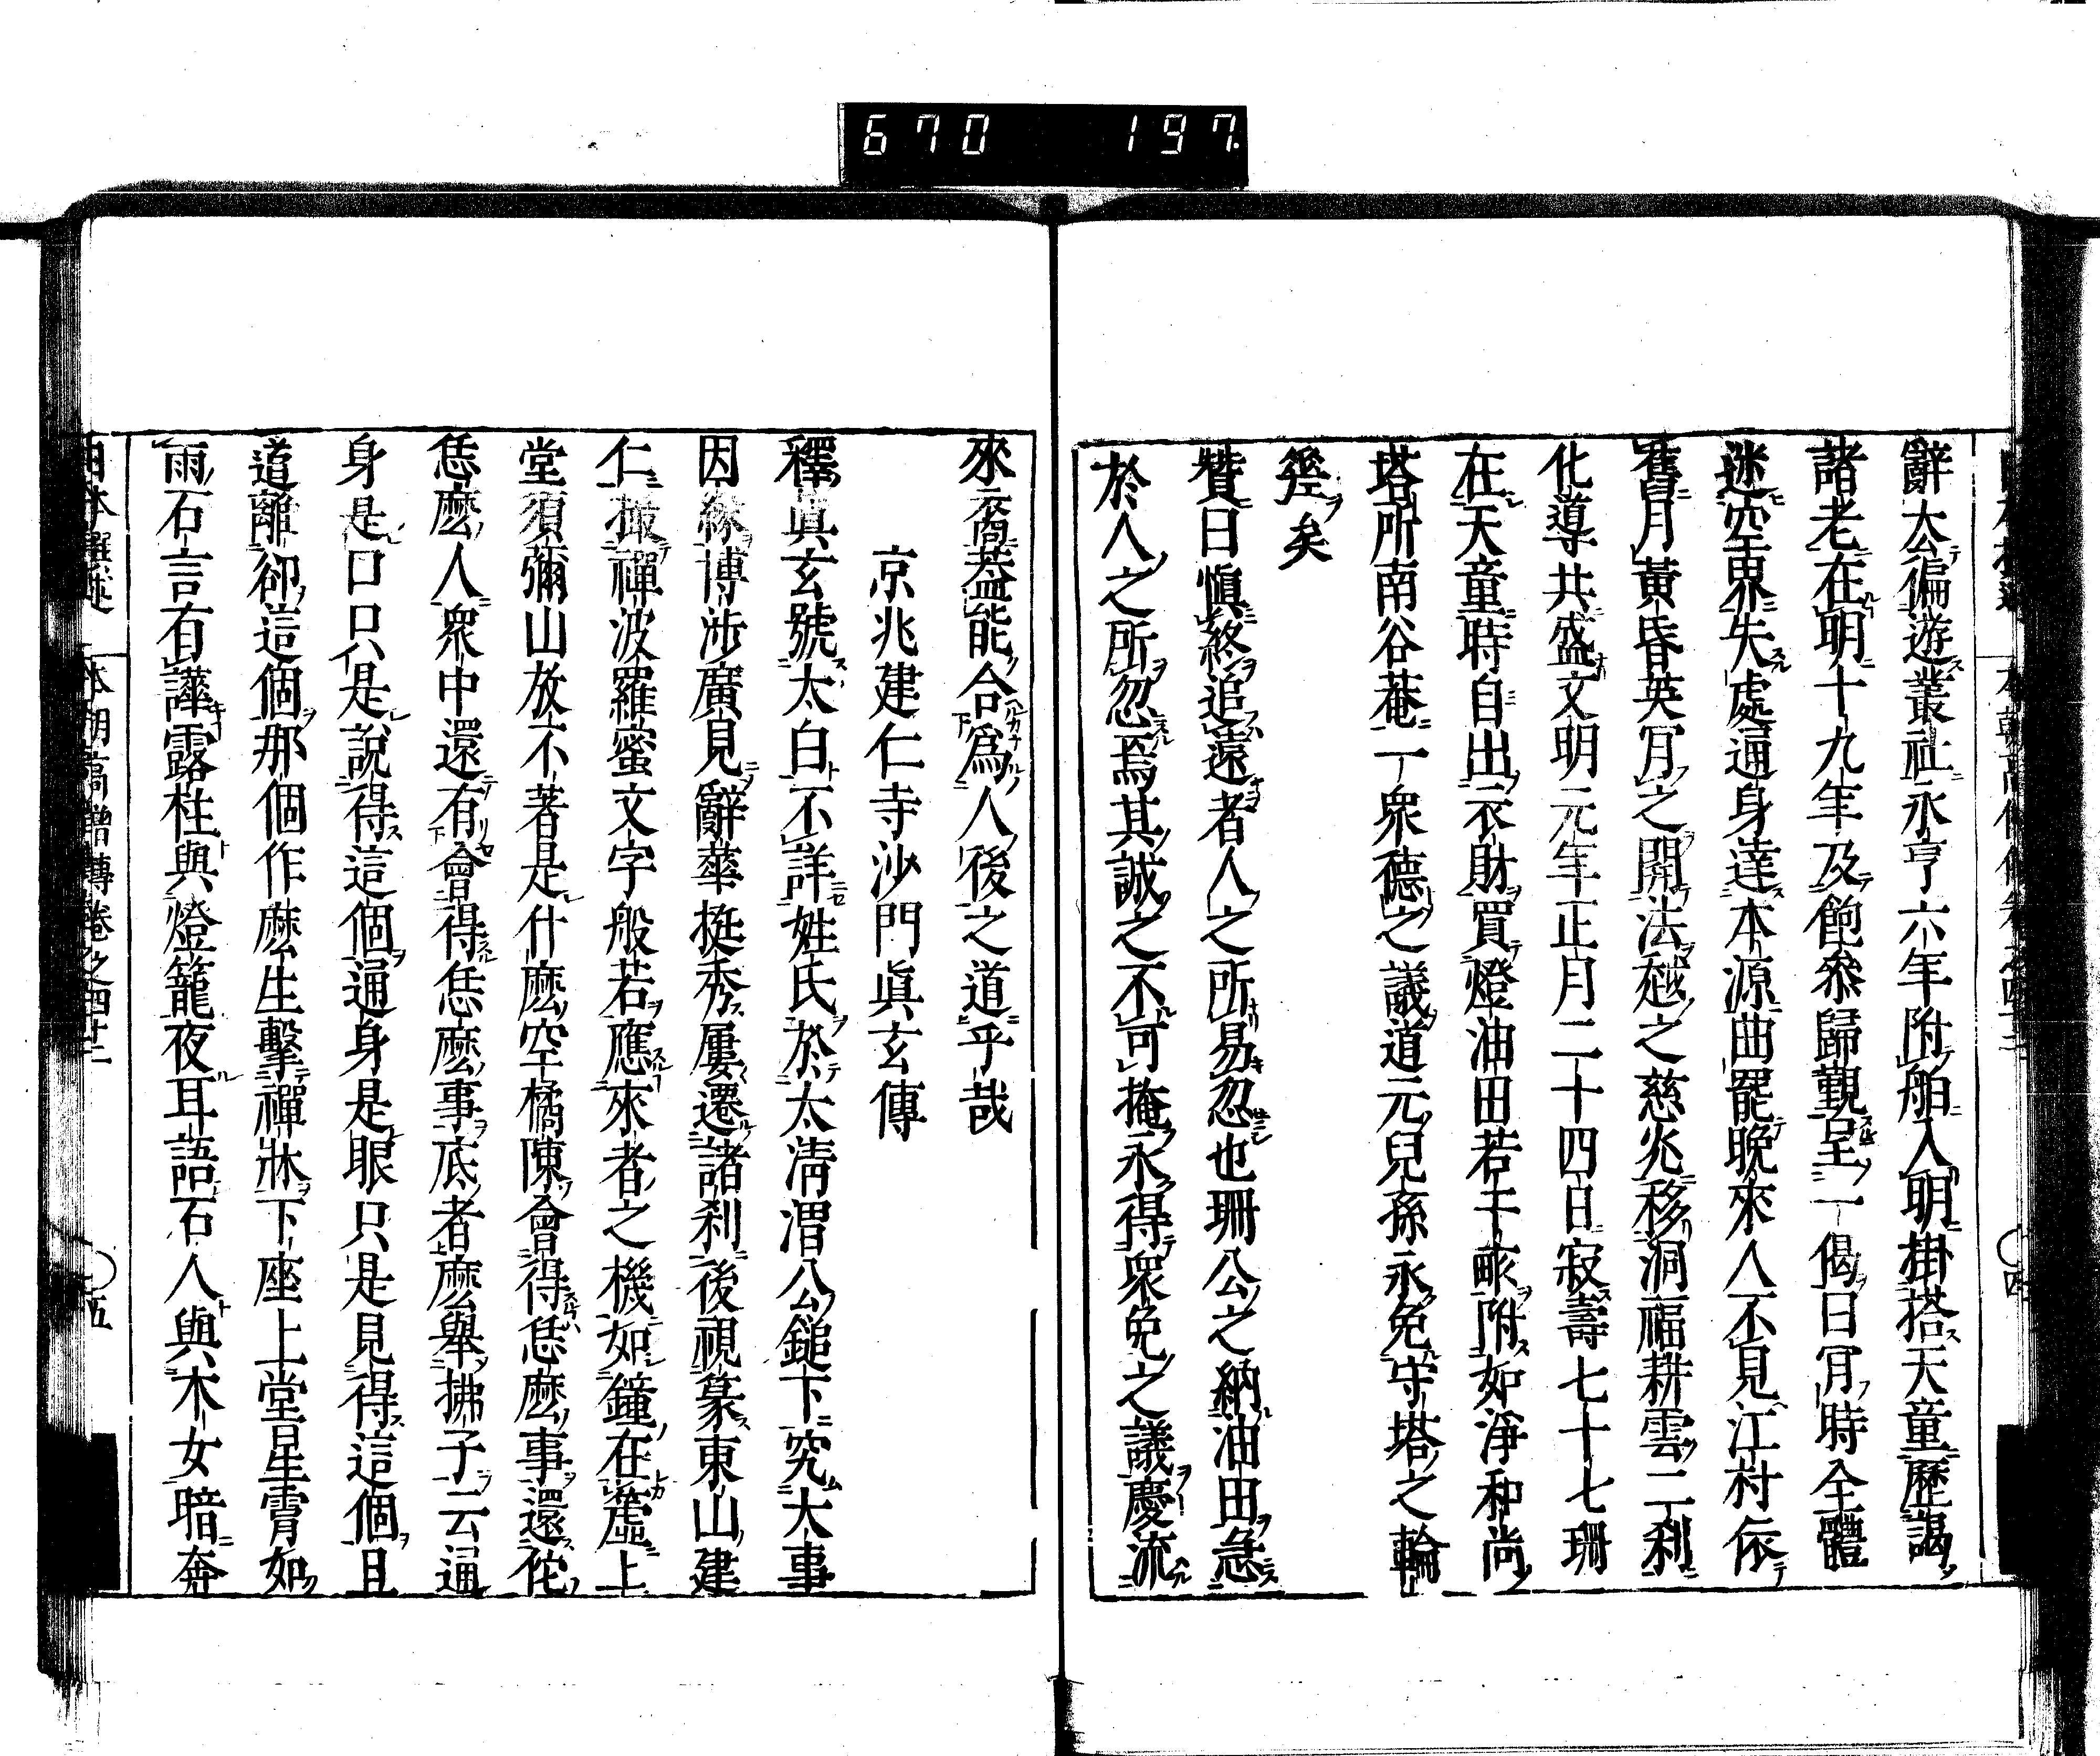 670 197
辭太公偏遊叢社永亨六年附舶入明掛搭天童歷謁
諸老在明十九年及飽叅歸觀呈一偈曰冐時全體
迷空界失處通身達本源曲罷晚來人不見江村依
舊月黃昏英冐之開法越之慈光移洞福耕雲二刹
化導共盛文明元年正月二十四日寂壽七十七珊
在天童時自出衣財買燈油田若干畝附如淨和尚
塔所南谷菴一衆德之議道元兒孫永免守塔之輪
矣
贊曰愼終追遠者人之所易忽也珊公之納油田急
於人之所忽焉其誠之不可掩永得衆免之議慶流
來裔葢能合爲人後之道乎哉
京兆建仁寺沙門眞玄傳
釋眞玄號太白不詳姓氏於太淸渭公鎚下究大事
因緣博涉廣見辭華挺秀屢遷諸刹後視篆東山建
仁撮禪波羅蜜文字般若應來者之機如鐘在簴上
堂須彌山放不著是什麽空橘陳會得恁麽事還佗
恁麽人衆中還有會得恁麽事底者麽舉拂子云通
身是口只是說得這個通身是眼只是見得這個且
道離卻這個那個作麽生擊禪牀下座上堂星霄如
雨石言有譁露柱與燈籠夜耳語石人與木女暗奔
日本撰述 本朝高僧傳卷之四十二 五